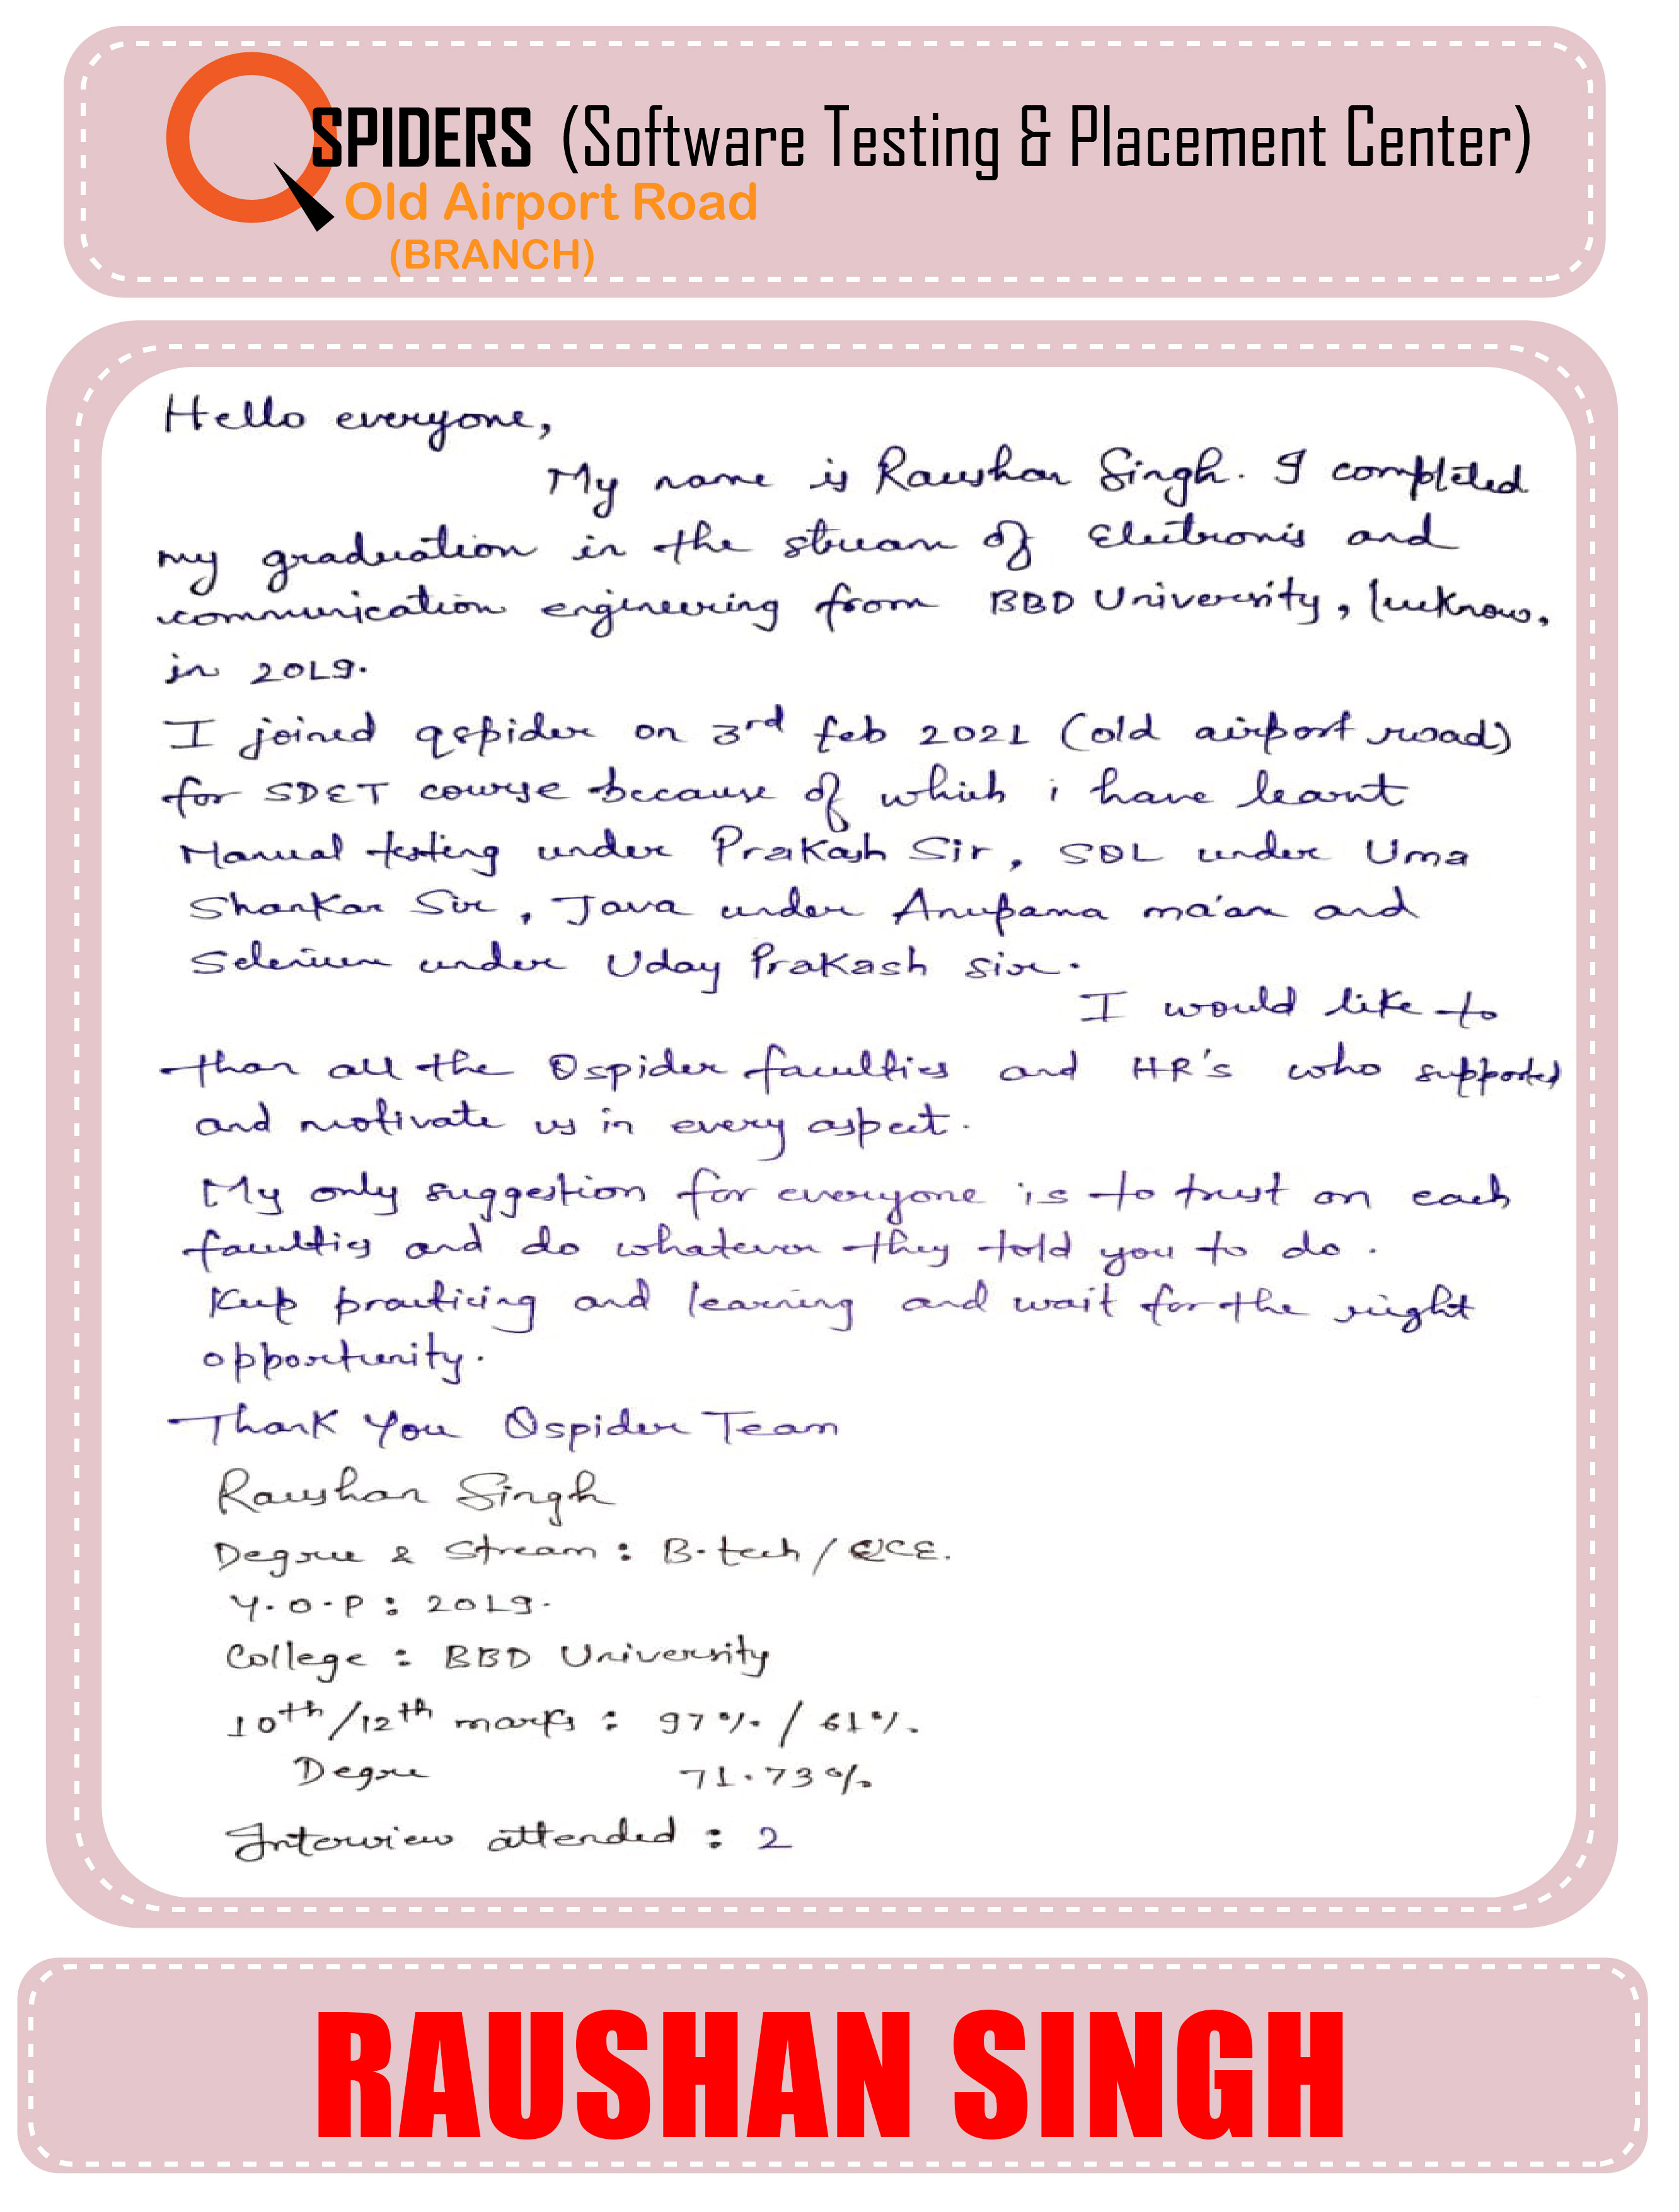 QSPIDERS (Software Testing & Placement Center)
Old Airport Road
(BRANCH)
Hello everyone,
My name is Raushan Singh. I completed
my graduation in the stream of Electronis and
communication engineering from BBD University, lucknow,
in 2019.
I joined qspider on 3rd feb 2021 (old airport road)
for SDET course because of which i have learnt
Manual testing under Prakash Sir, SQL under Uma
Shankar Sir, Java under Anupama ma'am and
Selenium under Uday Prakash sir.
I would like to
than all the Qspider faculties and HR's who supported
and motivate us in every aspect.
My only suggestion for everyone is to trust on each
faculties and do whatever they told you to do.
Keep practicing and learning and wait for the right
opportunity.
Thank You Qspider Team
Raushan Singh
Degree & Stream : B.tech / ECE.
Y.O.P : 2019.
College : BBD University
10th/12th marks : 97% / 61%.
Degree 71.73%
Interview attended : 2
RAUSHAN SINGH